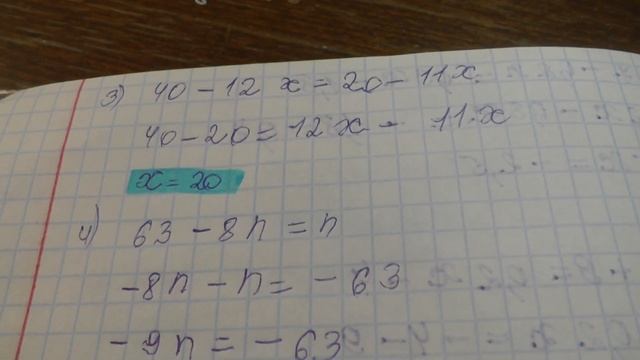 3) 40 - 12 x = 20 - 11x.
40 - 20 = 12x - 11x
x = 20
4) 63 - 8n = n
-8n - n = -63
-9n = -63